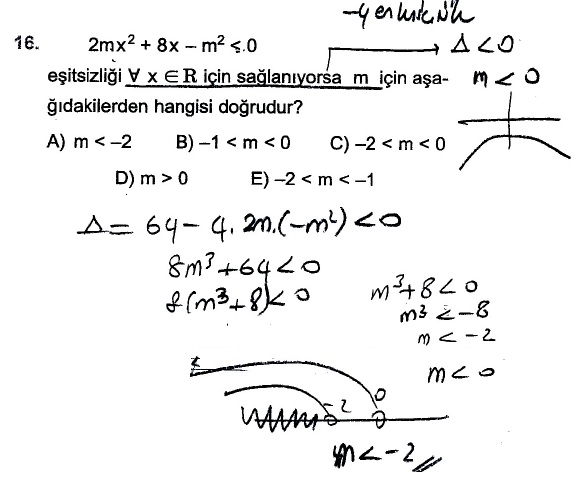 16. 2mx² + 8x – m² ≤ 0
Δ < 0
eşitsizliği ∀ x ∈ R için sağlanıyorsa m için aşa-
m < 0
ğıdakilerden hangisi doğrudur?
A) m < –2 B) –1 < m < 0 C) –2 < m < 0
D) m > 0 E) –2 < m < –1
Δ = 64 – 4. 2m.(–m²) < 0
8m³ + 64 < 0
8(m³ + 8) < 0
m³ + 8 < 0
m³ < –8
m < –2
m < 0
–2 0
m < –2